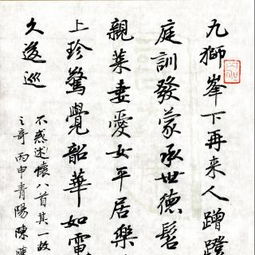 九獅峯下再来人蹭蹬
庭訓發蒙承世德髫
親萊妻愛女平居樂
上珍驚覺韶華如電
久逡巡
不惑述懷八首其一故
丙申青陽陳